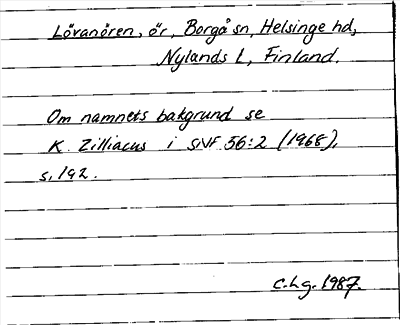 Lövanören, ör, Borgå sn, Helsinge hd,
Nylands l, Finland.
Om namnets bakgrund se
K. Zilliacus i SNF 56:2 (1968),
s. 192.
C.Lg. 1987.